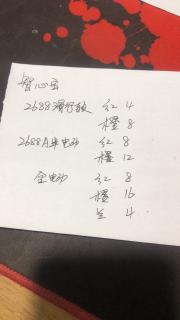 智心玉
2688滑行款 红 4
橙 8
2688A半电动 红 8
橙 12
全电动 红 8
橙 16
4